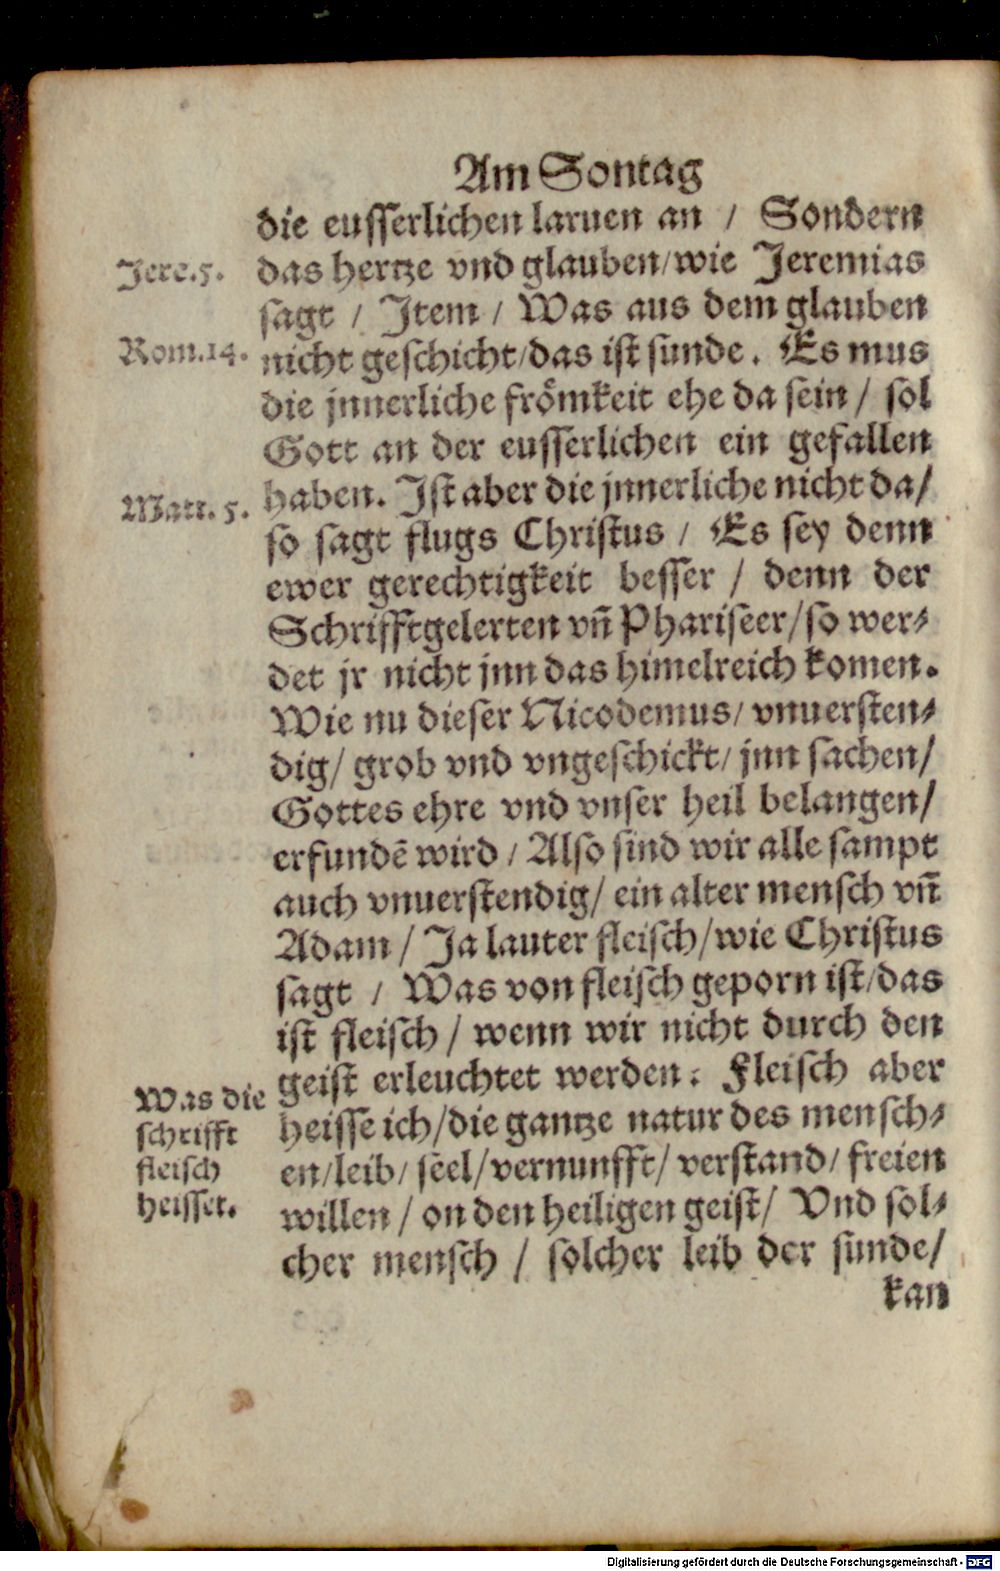 Am Sontag
die eusserlichen laruen an / Sondern
Jere.5.
das hertze vnd glauben/wie Jeremias
sagt / Item / Was aus dem glauben
Rom.14.
nicht geschicht/das ist sunde. Es mus
die jnnerliche frömkeit ehe da sein / sol
Gott an der eusserlichen ein gefallen
Matt. 5.
haben. Ist aber die jnnerliche nicht da/
so sagt flugs Christus / Es sey denn
ewer gerechtigkeit besser / denn der
Schrifftgelerten vñ Phariseer/so wer⸗
det jr nicht jnn das himelreich komen.
Wie nu dieser Nicodemus/ vnuersten⸗
dig/ grob vnd vngeschickt/ jnn sachen/
Gottes ehre vnd vnser heil belangen/
erfundē wird / Also sind wir alle sampt
auch vnuerstendig/ ein alter mensch vñ
Adam / Ja lauter fleisch/wie Christus
sagt / Was von fleisch geporn ist/das
ist fleisch / wenn wir nicht durch den
geist erleuchtet werden. Fleisch aber
Was die
schrifft
fleisch
heisset.
heisse ich/die gantze natur des mensch⸗
en/leib/ seel/vernunfft/ verstand/ freien
willen / on den heiligen geist/ Vnd sol⸗
cher mensch / solcher leib der sunde/
kan
Digitalisierung gefördert durch die Deutsche Forschungsgemeinschaft - DFG